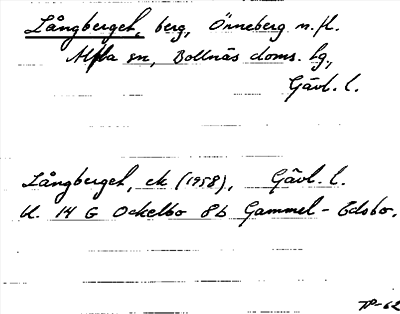 Långberget, berg, Örneberg m.fl.
Alfta sn, Bollnäs doms. hg.,
Gävl. l.
Långberget, ek (1958), Gävl. l.
bl. 14 G Ockelbo 8b Gammel-Edsbo.
TP-62